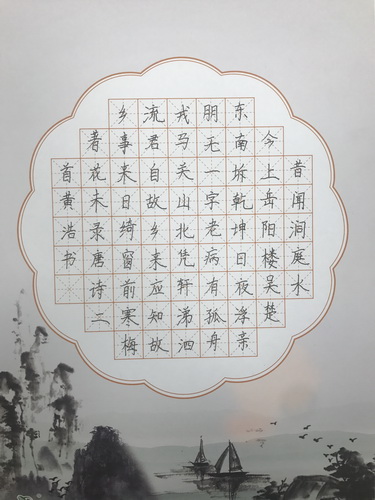 昔闻洞庭水
今上岳阳楼吴楚
东南坼乾坤日夜浮亲
朋无一字老病有孤舟
戎马关山北凭轩涕泗
流君自故乡来应知故
乡事来日绮窗前寒梅
著花未录唐诗二
首黄浩书